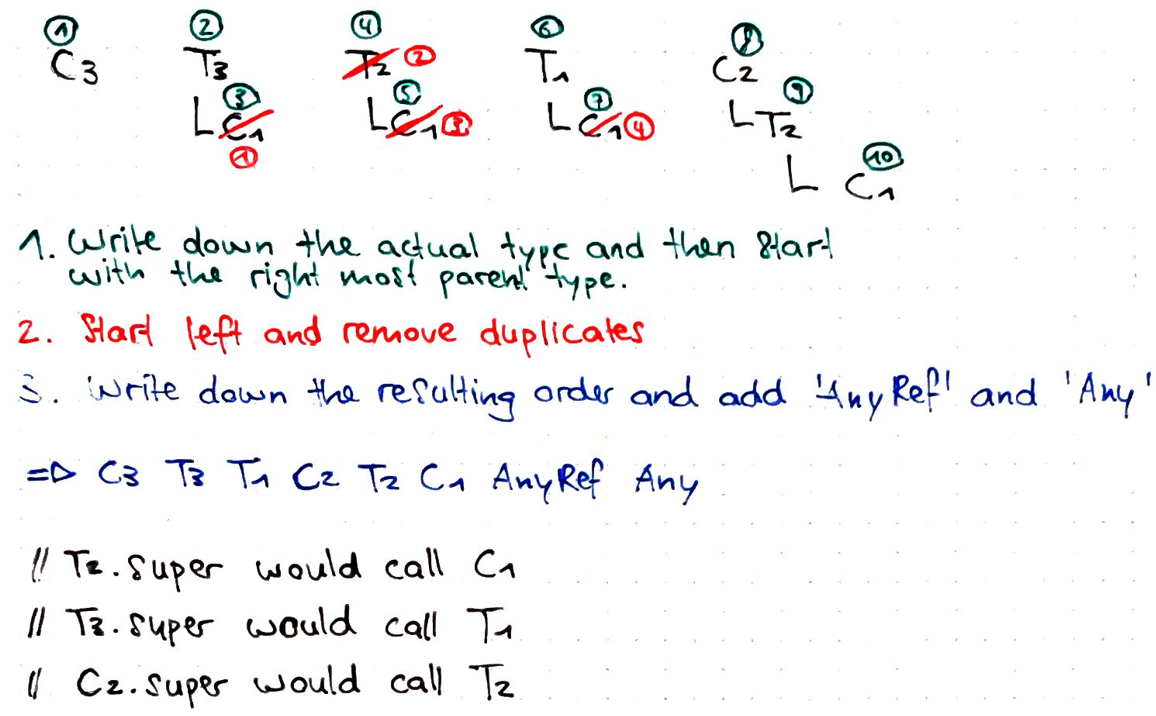 1 2 4 6 8
C3 T3 T2 2 T1 C2
3 5 7 9
L C1 L C1 3 L C1 4 L T2
1 10
L C1
1. Write down the actual type and then start
with the right most parent type.
2. Start left and remove duplicates
3. Write down the resulting order and add 'AnyRef' and 'Any'
=> C3 T3 T1 C2 T2 C1 AnyRef Any
// T2.super would call C1
// T3.super would call T1
// C2.super would call T2